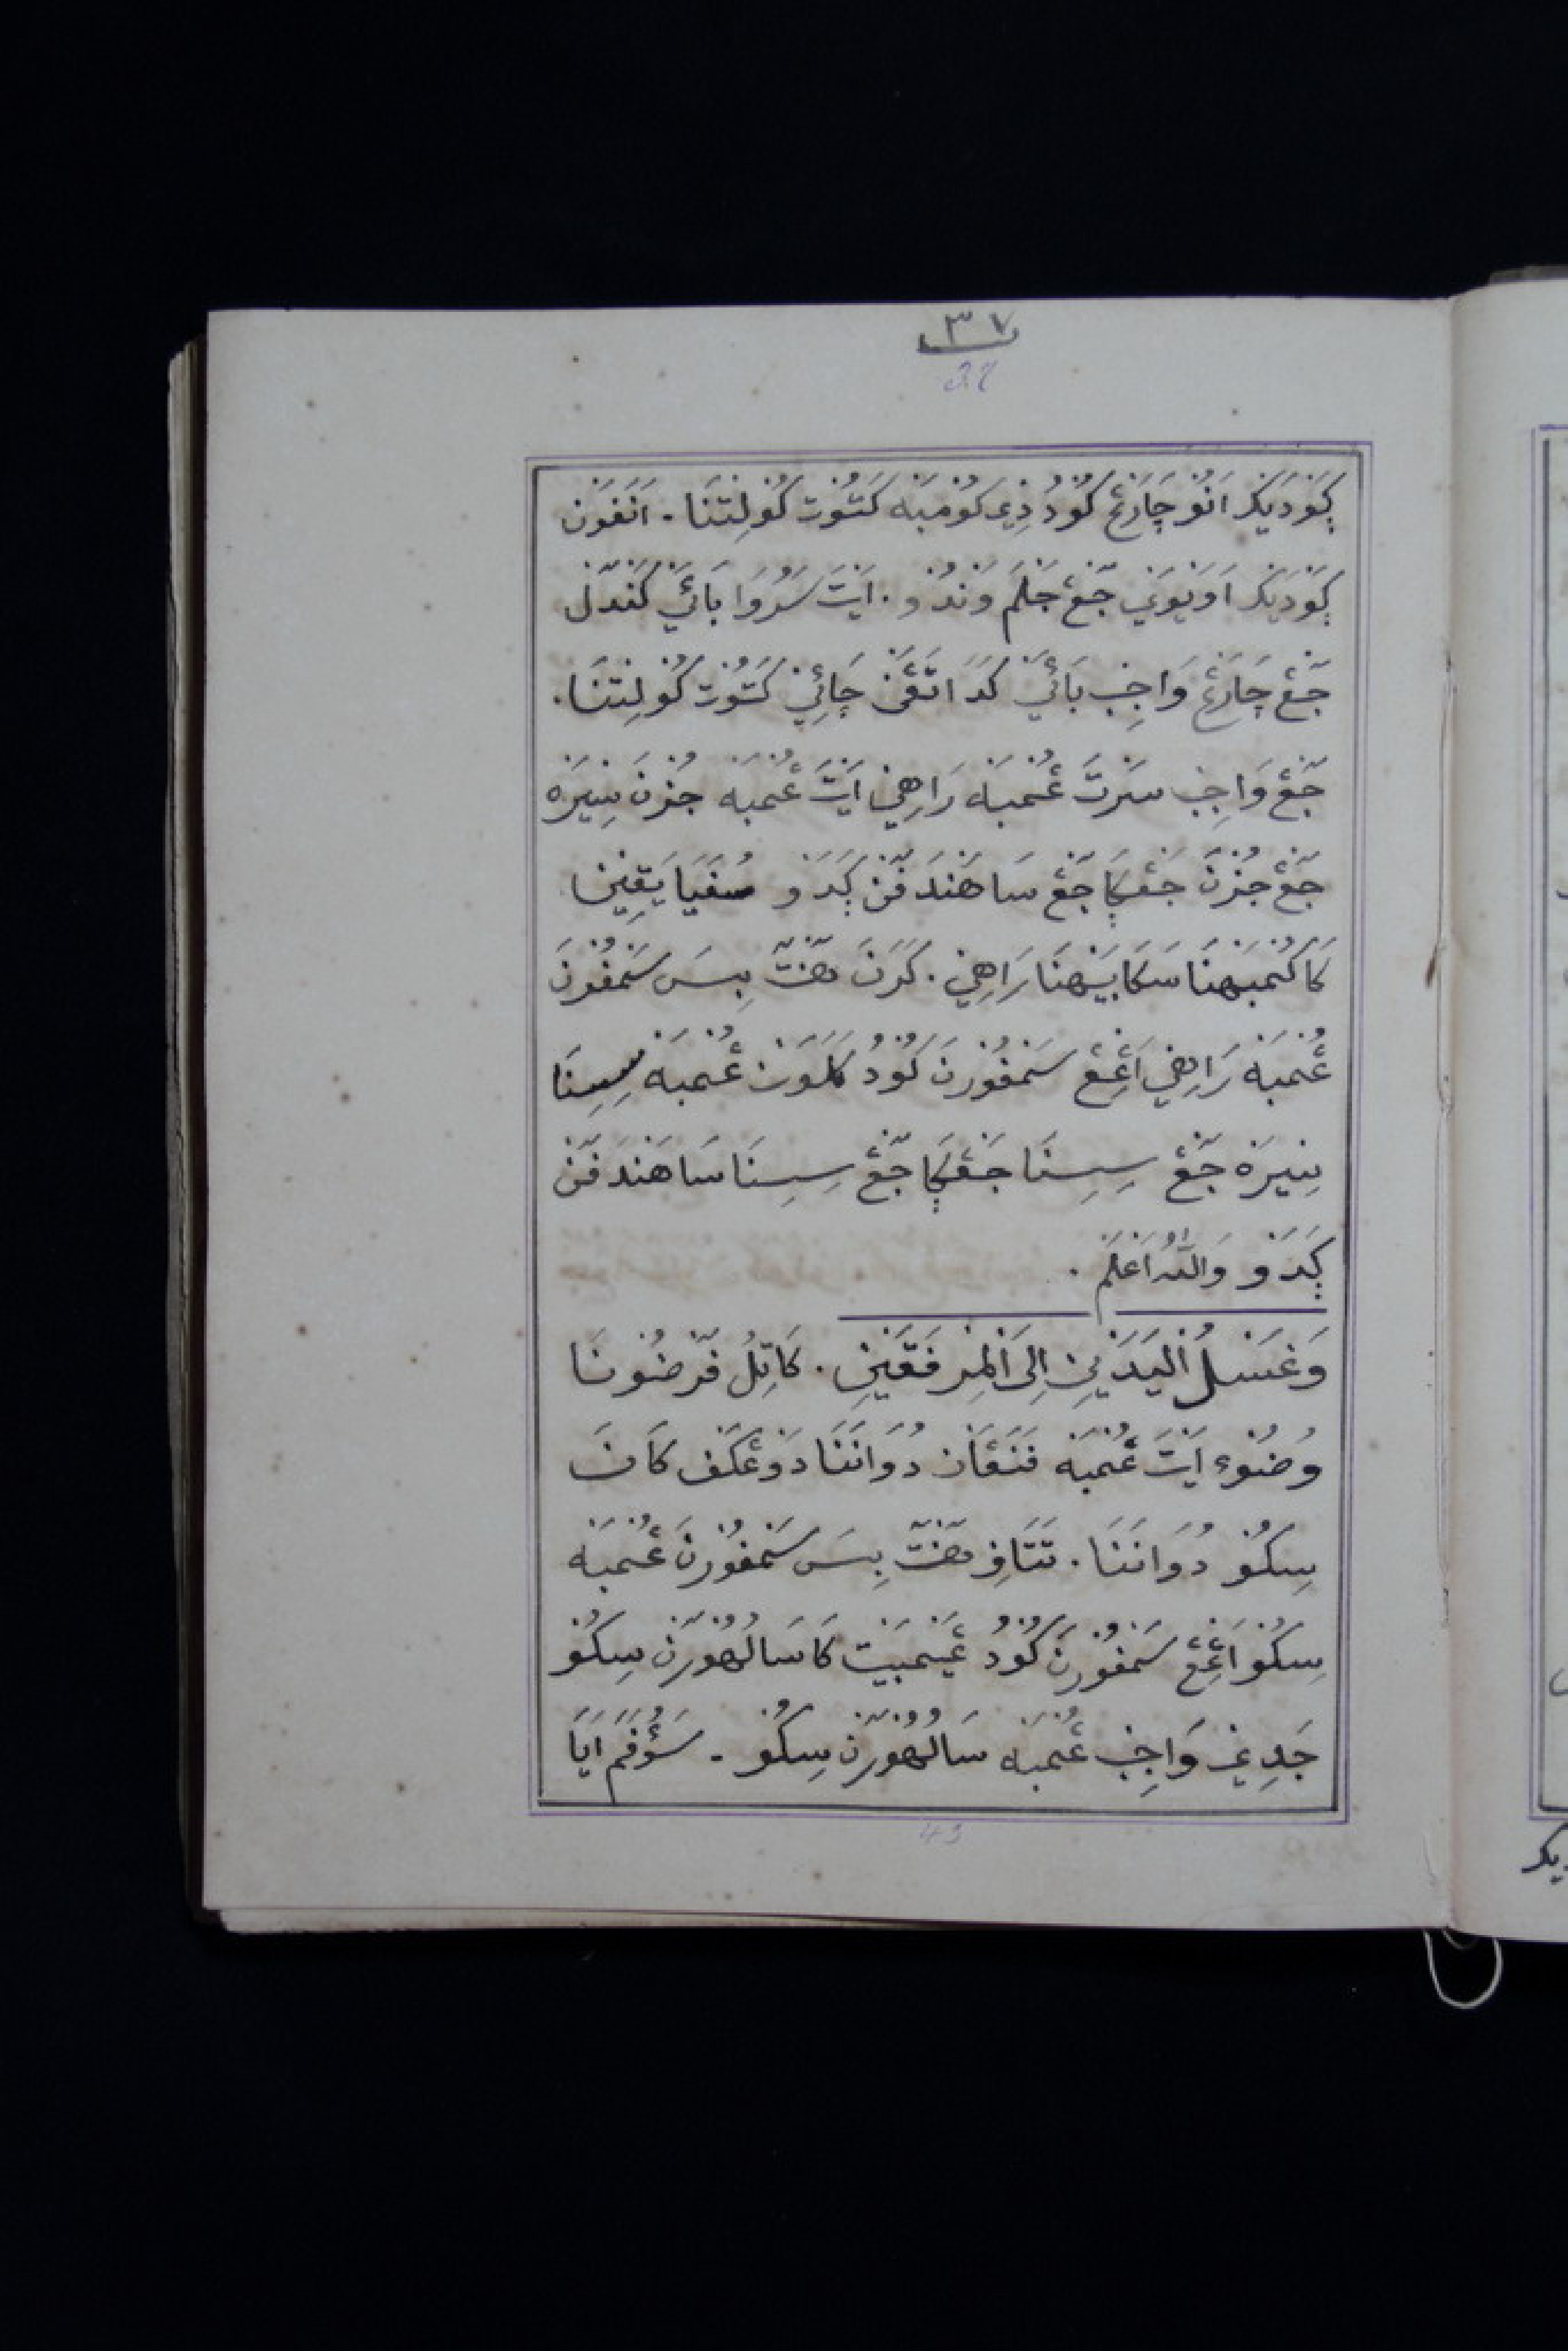 ٣٧
38
كَوَدَيَكَر اَنُوْ چَارَيْ كُوْدُ ذِي كُوْمْبَه كَتُوْت كُوْلِتْنَا. اَنَفُوْن
كَوَدَيَكَر اَوَيْوَنِي جَڠْ جَلَمْ وَنْدُوْ. اَيْتَ سَرُوَا بَائَيْ كَنْدَل
جَڠْ چَارَيْ وَاجِب بَائَيْ كَدَ اتَّڠَن چَائِيْ كَتُوْت كُوْلِتْنَا.
جَڠْ وَاجِب سَرْتَ عُمْبَه رَاهِيْ اَيْتَ عُمْبَه جُزْنَ بِنِيْرَه
جَڠْ جُزْنَ جَڠْكَا جَڠْ سَاهَنْدَفَّنْ كَدَوْ سُفَيَا يَقِيْن
كَاكُمْبَهْنَا سَكَابَيْهْنَا رَاهِيْ. كَرَنَ مَنْتَ بِسَ سَمْفُوْرْنَ
عُمْبَه رَاهِيْ اَڠِيْڠْ سَمْفُوْرْنَ كُوْدُ كَلَوَنْ عُمْبَه سِسِنَا
بِنِيْرَه جَڠْ سِسِنَا جَڠْكَا جَڠْ سِسِنَا سَاهَنْدَفَّنْ
كَدَوْ وَاللهُ اَعْلَمْ.
وَغَسْلُ الْيَدَيْنِ اِلَى الْمِرْفَقَيْنِ. كَاتِلُ فَرْضُوْنَا
وُضُوْء اَيْتَ عُمْبَه تَنَڠَان دُوَانَنَا دَوْڠْكَف كَانَ
سِكُوْ دُوَانَنَا. تَتَافِ مَنْتَ بِسَ سَمْفُوْرْنَ عُمْبَه
سِكُوْ اَڠِيْڠْ سَمْفُوْرْنَ كُوْدُ عَيْمْبَيْت كَاسَالُهُوْرَنْ سِكُوْ
جَدِيْ وَاجِب عُمْبَه سَالُهُوْرَنْ سِكُوْ. سَؤُفَمَ اَيَا
43